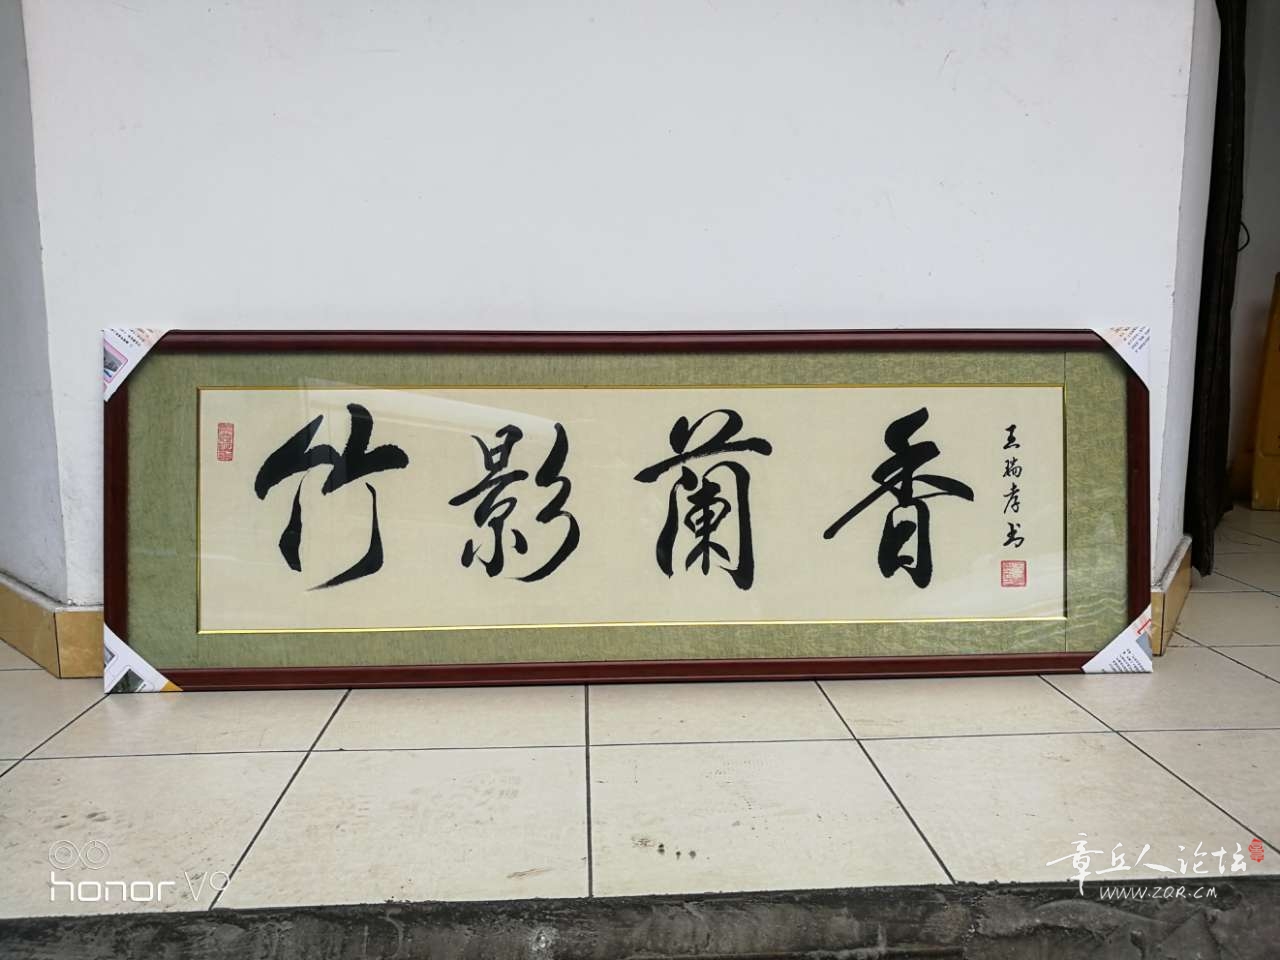 竹影蘭香
王瑞孝书
honor V9
章丘人论坛
WWW.ZQR.CM